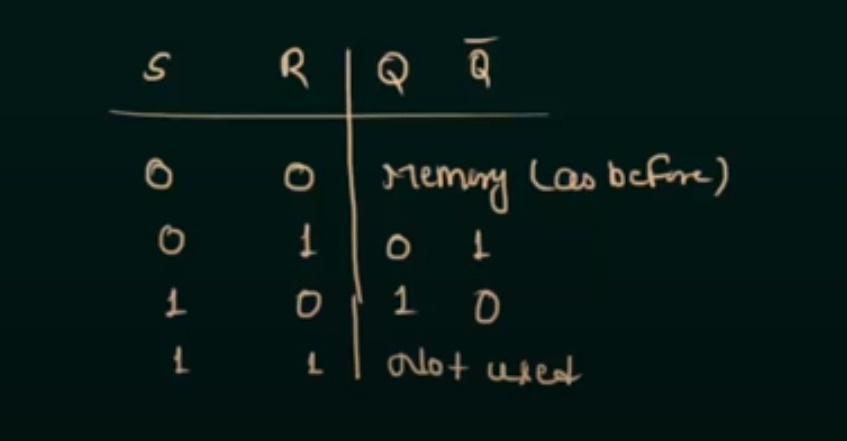 S R Q Q̅
0 0 Memory (as before)
0 1 0 1
1 0 1 0
1 1 Not used